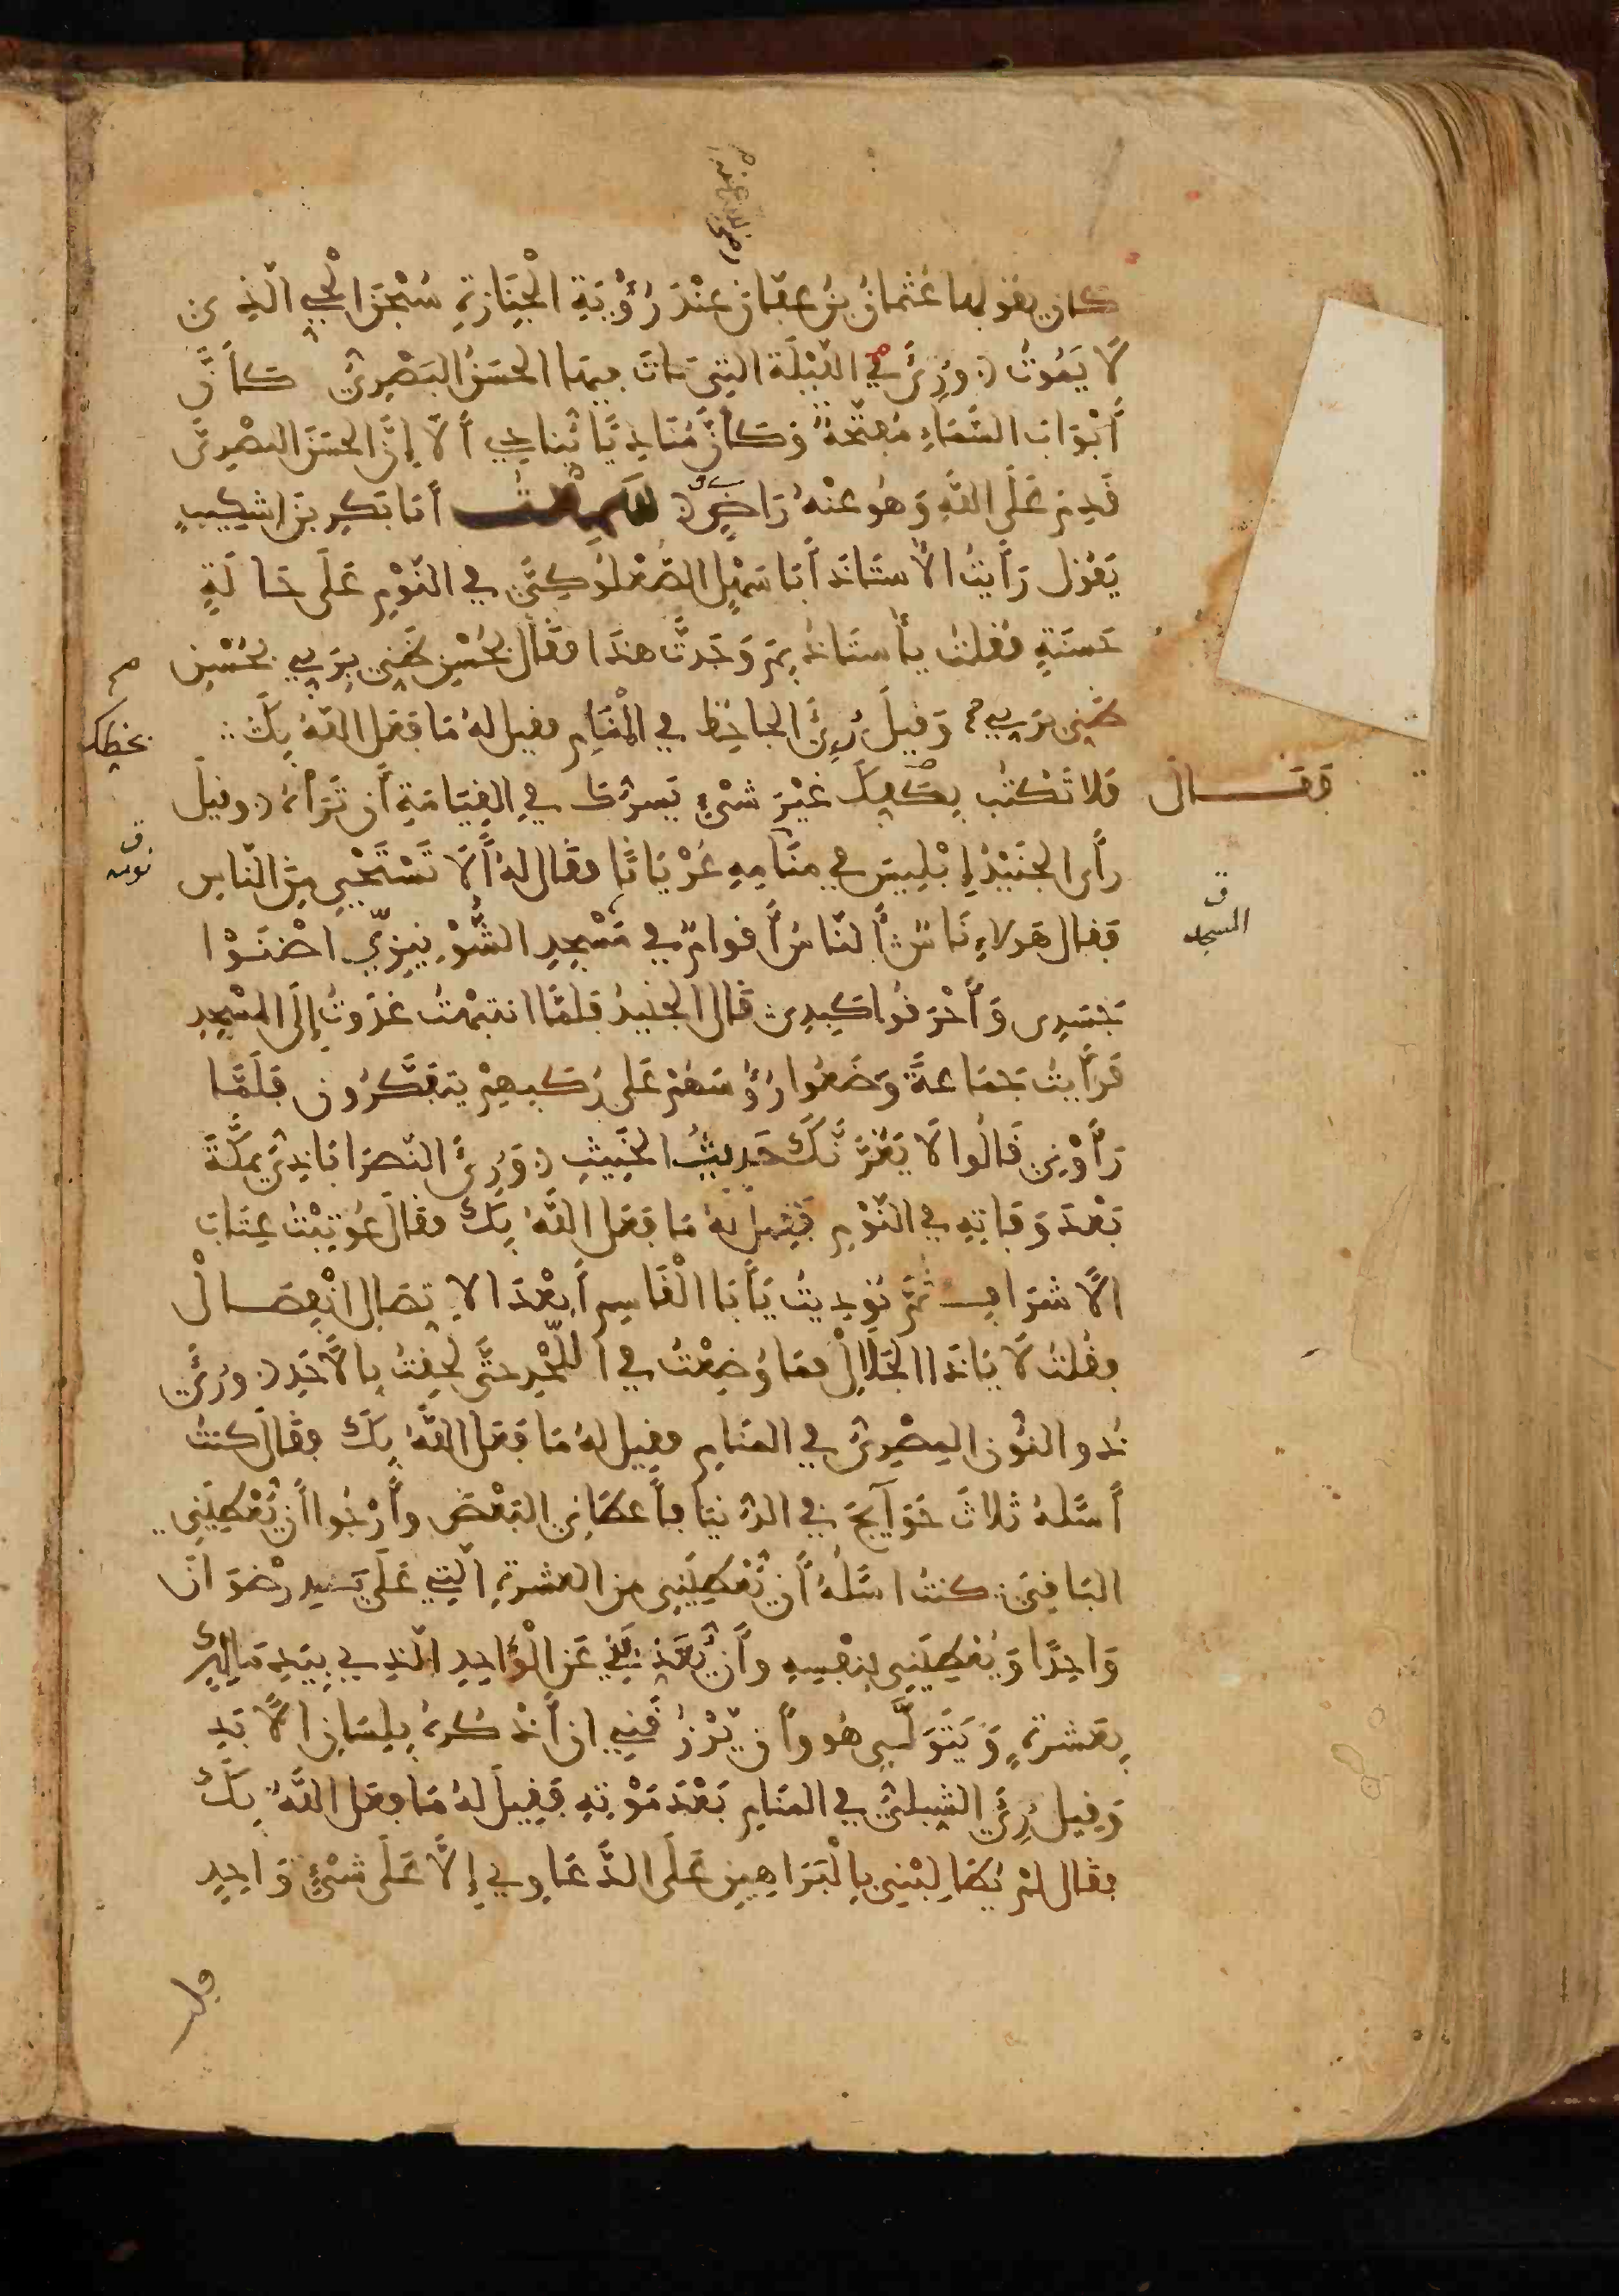 كان يقولها عثمان بن عفان عند رؤية الجنازة سبحن الحي الذي
لا يموت ورئي في الليلة التي مات فيها الحسن البصري كأن
أبواب السماء مفتحة وكأن مناديا ينادي ألا إن الحسن البصري
قدم على الله وهو عنه راض سمعت أبا بكر بن اشكيب
يقول رأيت الأستاذ أبا سهل الصعلوكي في النوم على حالة
حسنة فقلت يأستاذ بم وجدت هذا فقال بحسن ظني بربي بحسن
ظني بربي وقيل رئي الجاحظ في المنام فقيل له ما فعل الله بك
فقال
فلا تكتب بكفك غير شيء يسرك في القيامة أن تراه وقيل
بخطك
رأى الجنيد إبليس في منامه عريانا فقال له ألا تستحيي من الناس
نومه
فقال هولاء ناس الناس أقوام في مسجد الشونيزي اضنوا
المسجد
جسدي وأحرقوا كبدي قال الجنيد فلما انتبهت غدوت إلى المسجد
فرأيت جماعة وضعوا رؤسهم على ركبهم يتفكرون فلما
رأوني قالوا لا يغرنك حديث الخبيث ورئي النصراباذي بمكة
بعد وفاته في النوم فقيل له ما فعل الله بك فقال عوتبت عتاب
الأشراف ثم نوديت يأبا القاسم أبعد الاتصال انفصال
فقلت لا ياذا الجلال فما وضعت في اللحد حتى لحقت بالأحد ورئي
ذو النون المصري في المنام فقيل له ما فعل الله بك فقال كنت
أسئله ثلاث حوآيج في الدنيا فأعطاني البعض وأرجوا أن يعطيني
الباقي كنت اسئله أن يعطيني من العشرة التي على يد رضوان
واحدا ويعطيني بنفسه وأن يعذبني عن الواحد الذي بيد مالك
بعشرة ويتولى هو وأن يرزقني ان أذكره بلسان الأبد
وقيل رئي الشبلي في المنام بعد موته فقيل له ما فعل الله بك
فقال لم يطالبني بالبراهين على الدعاوي إلا على شيء واحد